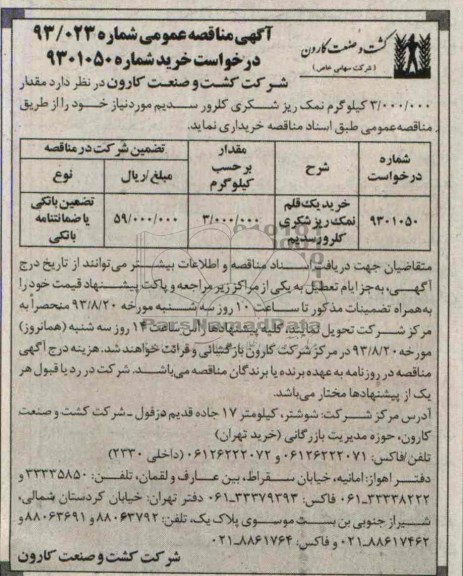 آگهی مناقصه عمومی شماره ۹۳/۰۲۳
درخواست خرید شماره ۹۳۰۱۰۵۰
کشت و صنعت کارون
( شرکت سهامی خاص )
شرکت کشت و صنعت کارون در نظر دارد مقدار
۳/۰۰۰/۰۰۰ کیلوگرم نمک ریز شکری کلرور سدیم موردنیاز خود را از طریق
مناقصه عمومی طبق اسناد مناقصه خریداری نماید.
شماره درخواست
شرح
مقدار بر حسب کیلوگرم
تضمین شرکت در مناقصه
مبلغ/ریال
نوع
۹۳۰۱۰۵۰
خرید یک قلم نمک ریز شکری کلرور سدیم
۳/۰۰۰/۰۰۰
۵۹/۰۰۰/۰۰۰
تضمین بانکی یا ضمانتنامه بانکی
متقاضیان جهت دریافت اسناد مناقصه و اطلاعات بیشتر می‌توانند از تاریخ درج
آگهی، به‌جز ایام تعطیل به یکی از مراکز زیر مراجعه و پاکت پیشنهاد قیمت خود را
به همراه تضمینات مذکور تا ساعت ۱۰ روز سه شنبه مورخه ۹۳/۸/۲۰ منحصراً به
مرکز شرکت تحویل نمایند. کلیه پیشنهادها راس ساعت ۱۴ روز سه شنبه (همانروز)
مورخه ۹۳/۸/۲۰ در مرکز شرکت کارون بازگشائی و قرائت خواهند شد. هزینه درج آگهی
مناقصه در روزنامه به عهده برنده یا برندگان مناقصه می‌باشد. شرکت در رد یا قبول هر
یک از پیشنهادها مختار می‌باشد.
آدرس مرکز شرکت: شوشتر، کیلومتر ۱۷ جاده قدیم دزفول ـ شرکت کشت و صنعت
کارون، حوزه مدیریت بازرگانی (خرید تهران)
تلفن/فاکس: ۰۶۱۲۶۲۲۲۰۷۱ و ۰۶۱۲۶۲۲۲۰۷۲ (داخلی ۲۳۳۰)
دفتر اهواز: امانیه، خیابان سقراط، بین عارف و لقمان، تلفن: ۳۳۳۳۵۸۵۰ و
۳۳۳۳۸۲۲۲-۰۶۱ فاکس: ۳۳۳۷۹۳۹۳-۰۶۱ دفتر تهران: خیابان کردستان شمالی،
شیراز جنوبی بن بست موسوی پلاک یک، تلفن: ۸۸۰۶۳۷۹۲ و ۸۸۰۶۳۶۹۱ و
۸۸۶۱۷۴۶۲-۰۲۱ و فاکس: ۸۸۶۱۷۶۴-۰۲۱
شرکت کشت و صنعت کارون